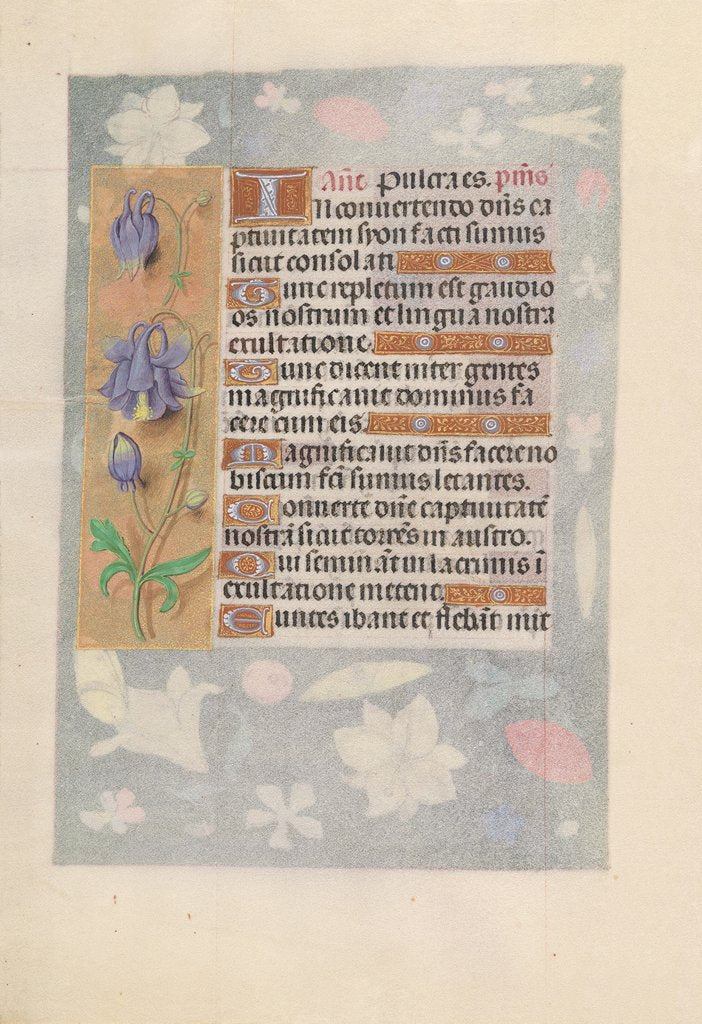 Añt Pulcra es. pm̃s
In conuertendo dñs ca
ptiuitatem syon facti sumus
sicut consolati.
Tunc repletum est gaudio
os nostrum et lingua nostra
exultatione.
Tunc dicent inter gentes
magnificauit dominus fa
cere cum eis.
Magnificauit dñs facere no
biscum fcĩ sumus letantes.
Conuerte dñe captiuitatẽ
nostrã sicut torrẽs in austro.
Qui seminãt in lacrimis ĩ
exultatione metent.
Euntes ibant et flebãt mit